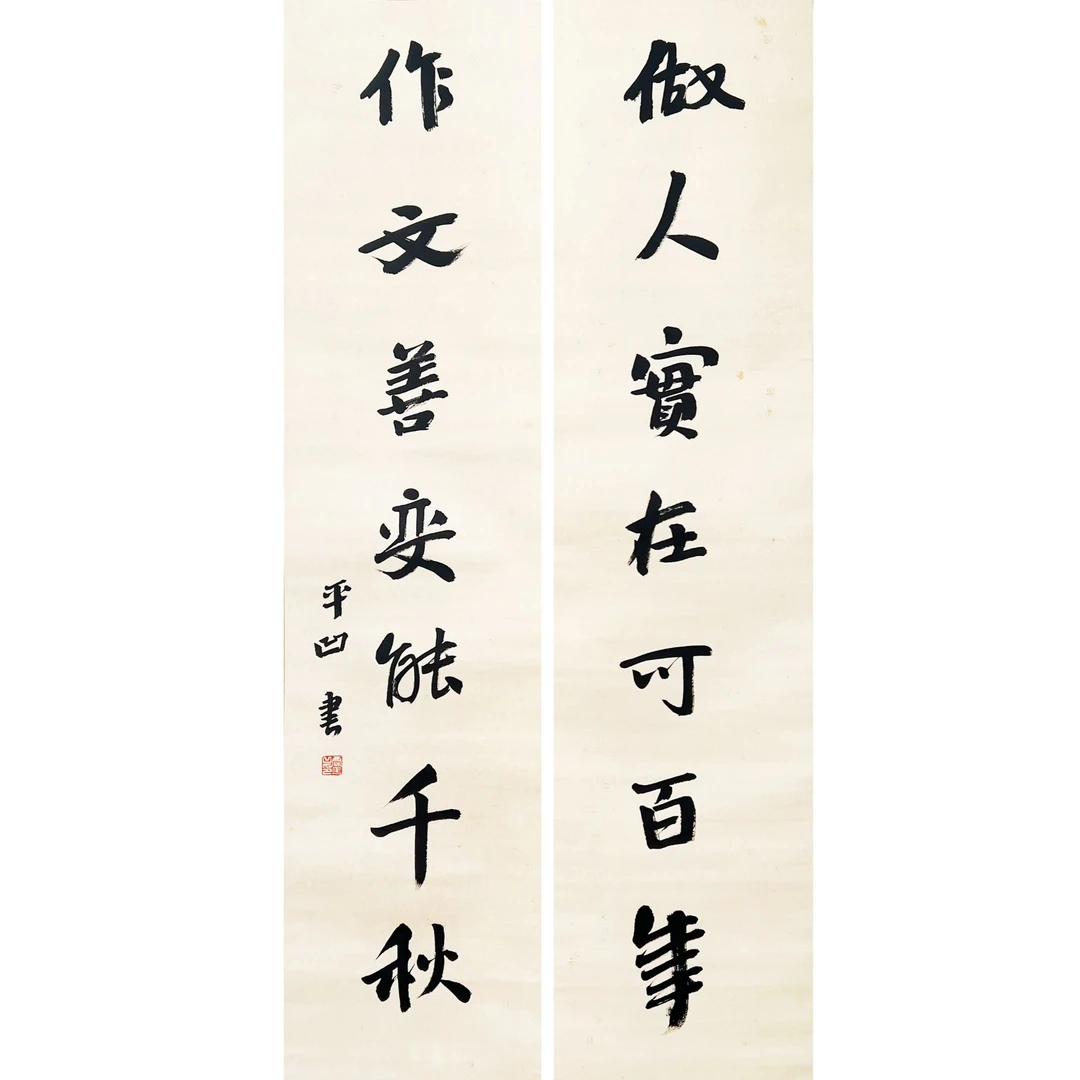 做人實在可百年
作文善变能千秋
平凹 書